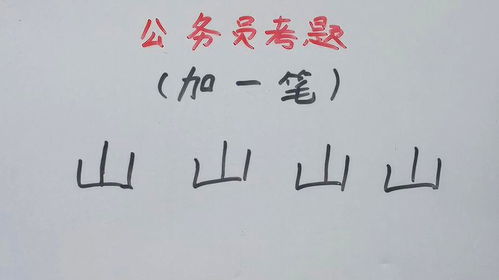 公务员考题
（加一笔）
山 山 山 山